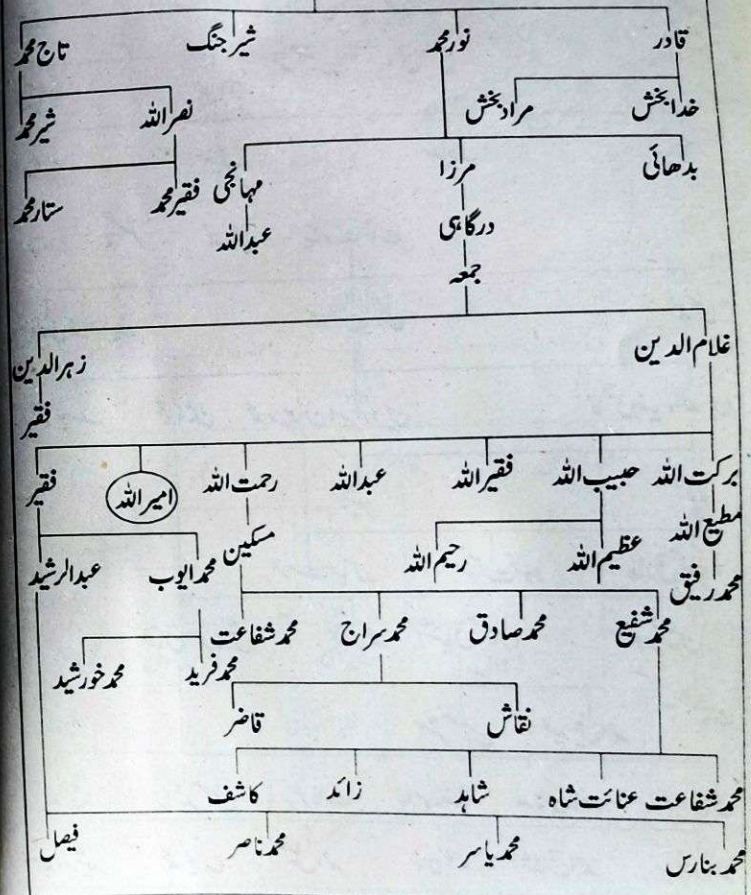 قادر نور محمد شیر جنگ تاج محمد
خدا بخش مراد بخش نصر اللہ شیر محمد
بدھائی مرزا مہانجی فقیر محمد ستار محمد
درگاہی عبداللہ
جمعہ
غلام الدین زہر الدین
فقیر
برکت اللہ حبیب اللہ فقیر اللہ عبداللہ رحمت اللہ امیر اللہ فقیر
مطیع اللہ عظیم اللہ رحیم اللہ مسکین محمد ایوب عبدالرشید
محمد رفیق
محمد شفیع محمد صادق محمد سراج محمد شفاعت محمد فرید محمد خورشید
نقاش قاضر
محمد شفاعت عنائت شاہ شاہد زائد کاشف
محمد بنارس محمد یاسر محمد ناصر فیصل